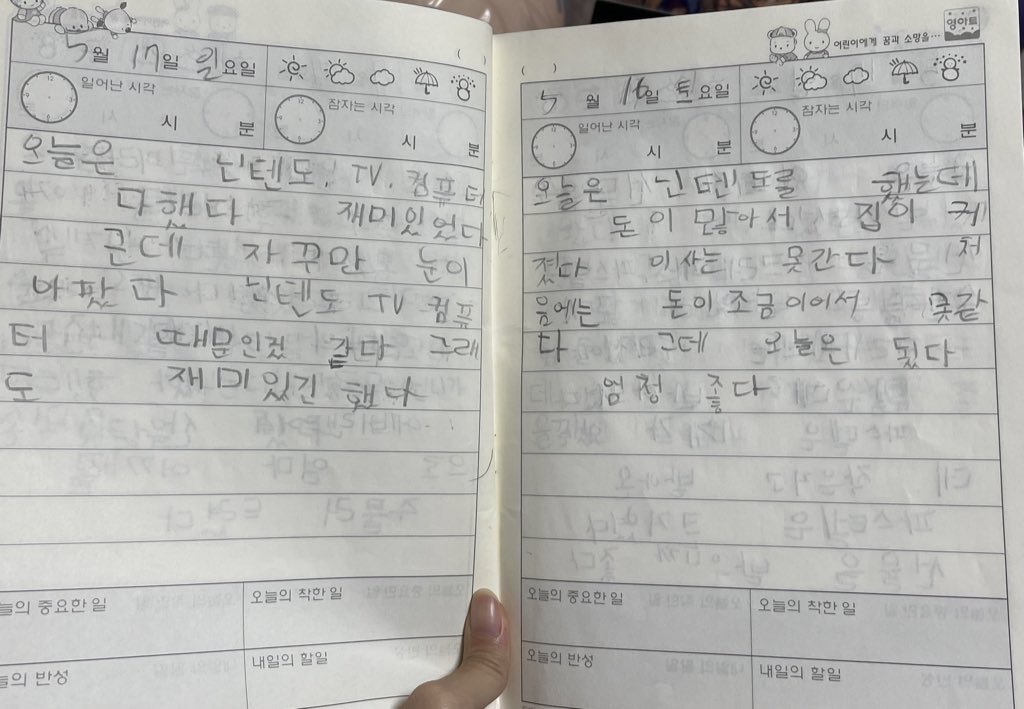 5월 17일 일요일
일어난 시각
시 분
잠자는 시각
시 분
오늘은 닌텐도, TV, 컴퓨터
다했다 재미있었다
근데 자꾸만 눈이
아팠다 닌텐도 TV 컴퓨
터 때문인겠 같다 그래
도 재미있긴 했다
늘의 중요한 일
오늘의 착한 일
늘의 반성
내일의 할일
어린이에게 꿈과 소망을…
영아트
5월 16일 토요일
일어난 시각
시 분
잠자는 시각
시 분
오늘은 닌텐도를 했는데
돈이 많아서 집이 커
졌다 이사는 못간다 처
음에는 돈이조금이이서 못갚
다 근데 오늘은 됬다
엄청 좋다
오늘의 중요한 일
오늘의 착한 일
오늘의 반성
내일의 할일